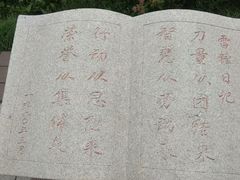 雷锋日记
力量从团结来
智慧从劳动来
行动从思想来
荣誉从集体来